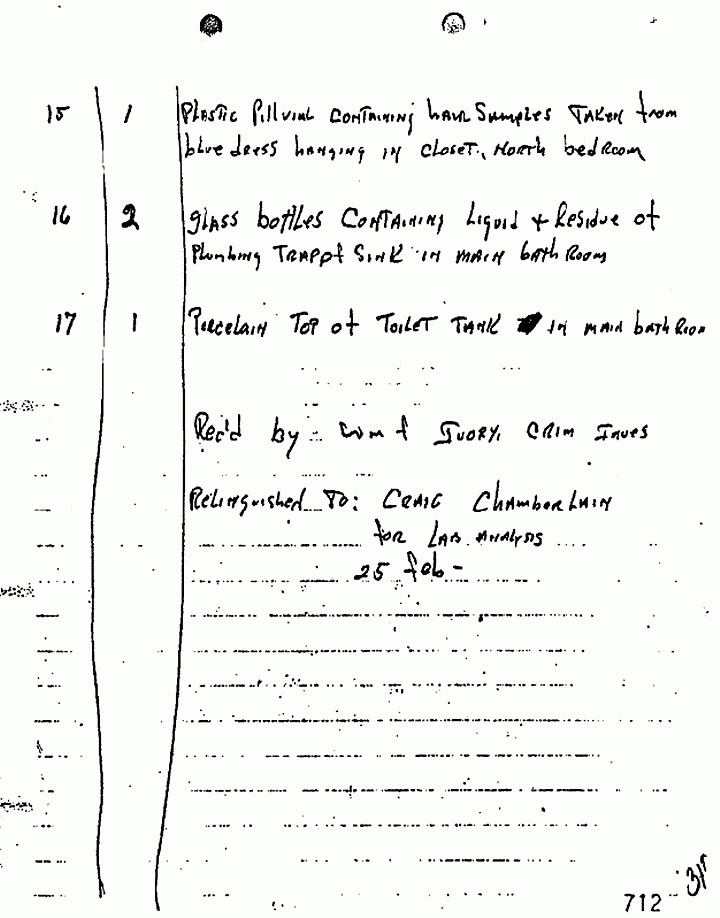 15 1 Plastic Pill vial containing hair samples taken from
blue dress hanging in closet, north bedroom
16 2 glass bottles containing liquid + residue of
plumbing trap of sink in main bathroom
17 1 Porcelain top of toilet tank in main bathroom
Rec'd by Wm f Ivory, Crim Inves
Relinquished To: Craig Chamberlain
for Lab Analysis
25 feb -
712